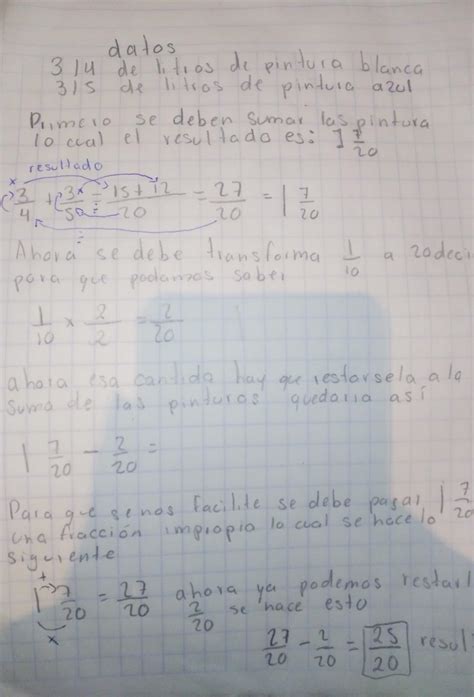 datos
3/4 de litros de pintura blanca
3/5 de litros de pintura azul
Primero se deben sumar las pintura
lo cual el resultado es: 1 7/20
resultado
x x ÷ ÷
3/4 + 3/5 = 15+12/20 = 27/20 = 1 7/20
Ahora se debe transforma 1/10 a 20deci
para que podamos saber
1/10 x 2/2 = 2/20
ahora esa cantida hay que restarsela a la
suma de las pinturas quedaria así
1 7/20 - 2/20 =
Para que se nos facilite se debe pasar 1 7/20
una fracción impropia lo cual se hace lo
siguiente
+
1 7/20 = 27/20 ahora ya podemos restarl
2/20 se hace esto
x
27/20 - 2/20 = 25/20 resul